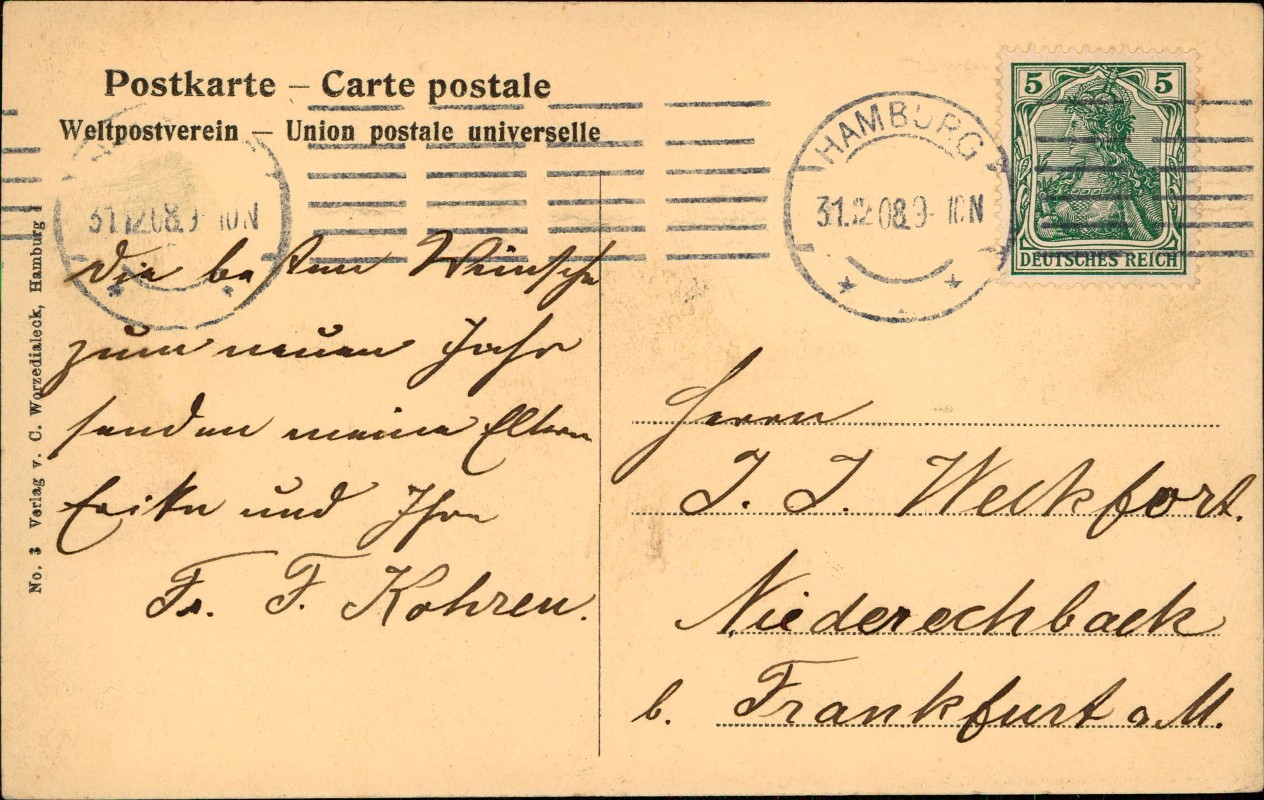 Postkarte – Carte postale
Weltpostverein – Union postale universelle
HAMBURG
31.12.08.9-10N
31.12.08.9-10N
5 5
DEUTSCHES REICH
Die besten Wünsche
zum neuen Jahr
senden meine Eltern
Erika und Ihre
Fr. F. Kohren.
Herrn
J. J. Weckfort.
Niederechback
b. Frankfurt a. M.
No. 3 Verlag v. C. Worzedialeck, Hamburg 1